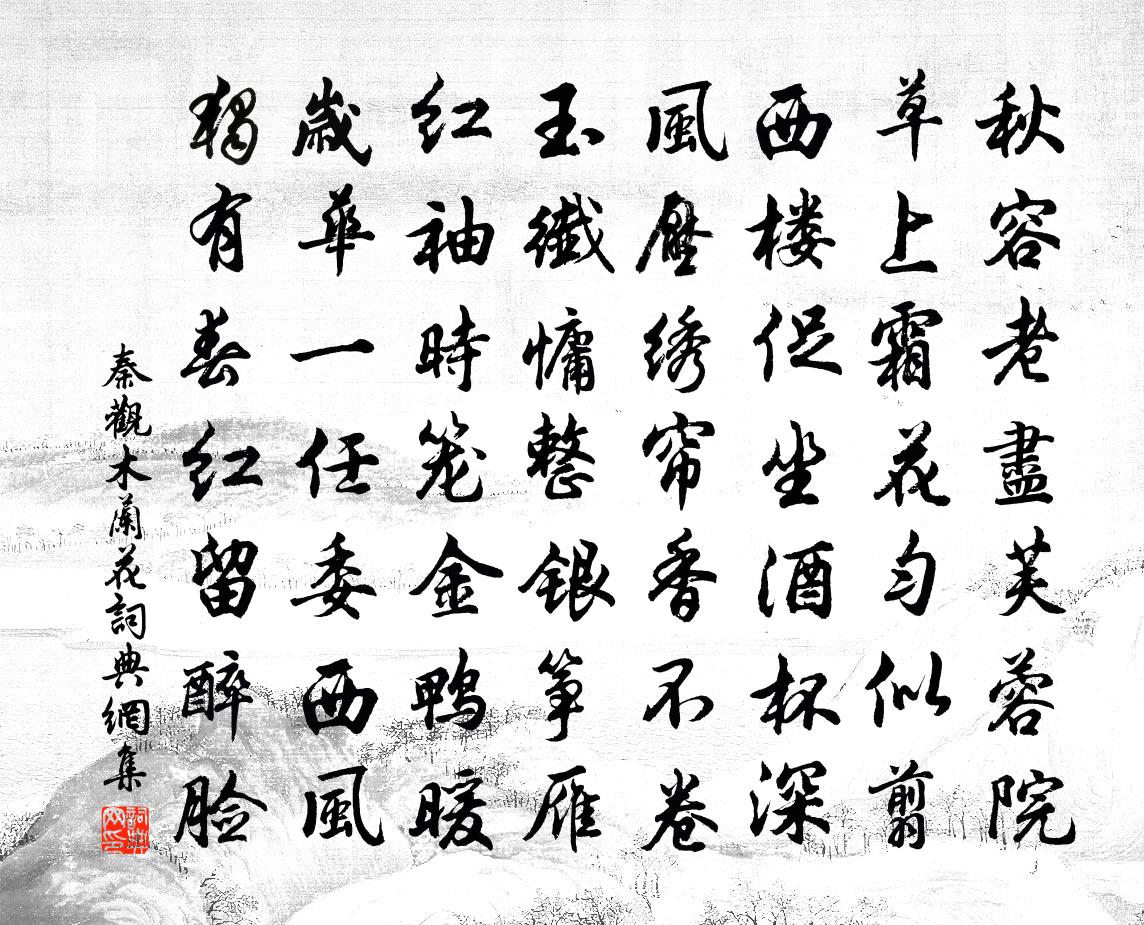 秋容老盡芙蓉院
草上霜花匀似翦
西楼促坐酒杯深
風壓绣帘香不卷
玉纖慵整银筝雁
红袖時笼金鸭暖
歲華一任委西風
獨有春红留醉脸
秦觀木蘭花詞典網集